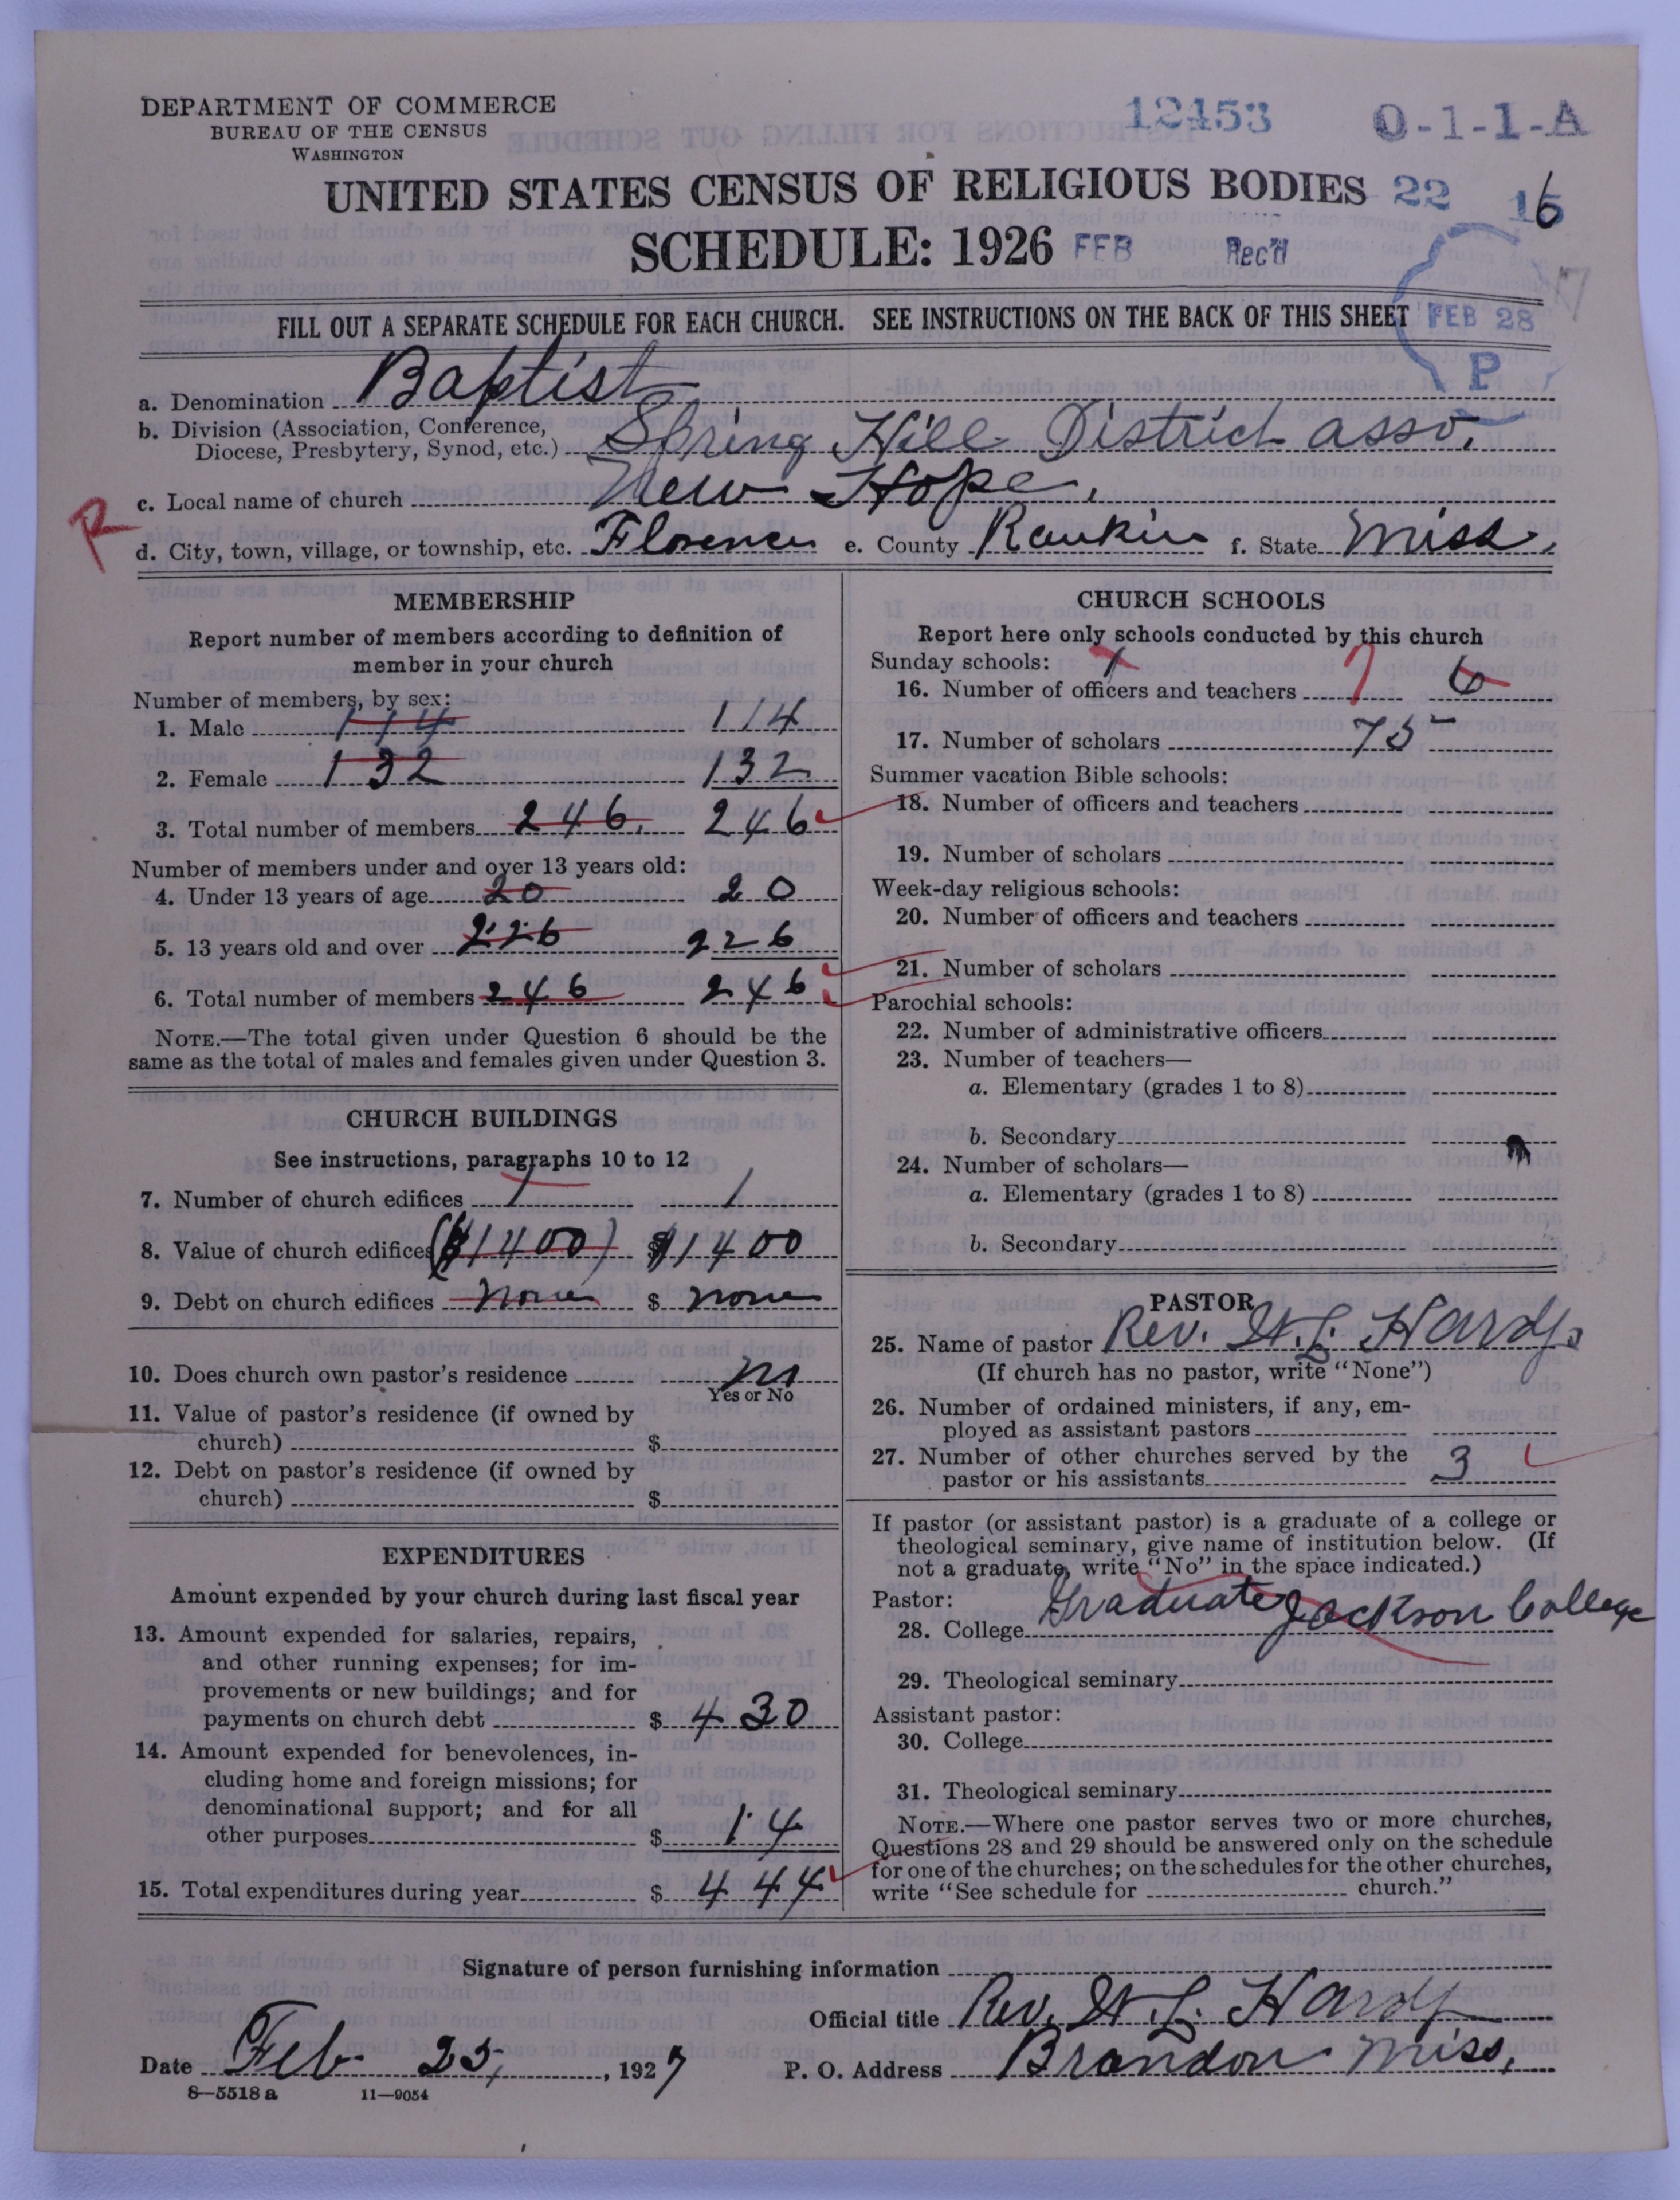 DEPARTMENT OF COMMERCE
BUREAU OF THE CENSUS
WASHINGTON
12453 0-1-1-A
UNITED STATES CENSUS OF RELIGIOUS BODIES 22 16
SCHEDULE: 1926 FEB Rec'd
FILL OUT A SEPARATE SCHEDULE FOR EACH CHURCH. SEE INSTRUCTIONS ON THE BACK OF THIS SHEET FEB 28
P
a. Denomination Baptist
b. Division (Association, Conference,
Diocese, Presbytery, Synod, etc.) Spring Hill District asso.
c. Local name of church New Hope.
R
d. City, town, village, or township, etc. Florence e. County Rankin f. State Miss.
MEMBERSHIP
Report number of members according to definition of
member in your church
Number of members, by sex:
1. Male 114 114
2. Female 132 132
3. Total number of members 246. 246
Number of members under and over 13 years old:
4. Under 13 years of age 20 20
5. 13 years old and over 226 226
6. Total number of members 246 246
NOTE.—The total given under Question 6 should be the
same as the total of males and females given under Question 3.
CHURCH BUILDINGS
See instructions, paragraphs 10 to 12
7. Number of church edifices 1 1
8. Value of church edifices ($1400) $1400
9. Debt on church edifices none $ none
10. Does church own pastor's residence no
Yes or No
11. Value of pastor's residence (if owned by
church) $
12. Debt on pastor's residence (if owned by
church) $
EXPENDITURES
Amount expended by your church during last fiscal year
13. Amount expended for salaries, repairs,
and other running expenses; for im-
provements or new buildings; and for
payments on church debt $ 430
14. Amount expended for benevolences, in-
cluding home and foreign missions; for
denominational support; and for all
other purposes $ 14
15. Total expenditures during year $ 444
CHURCH SCHOOLS
Report here only schools conducted by this church
Sunday schools: 1
16. Number of officers and teachers 7 6
17. Number of scholars 75
Summer vacation Bible schools:
18. Number of officers and teachers
19. Number of scholars
Week-day religious schools:
20. Number of officers and teachers
21. Number of scholars
Parochial schools:
22. Number of administrative officers
23. Number of teachers—
a. Elementary (grades 1 to 8)
b. Secondary
24. Number of scholars—
a. Elementary (grades 1 to 8)
b. Secondary
PASTOR
25. Name of pastor Rev. W. L. Hardy
(If church has no pastor, write "None")
26. Number of ordained ministers, if any, em-
ployed as assistant pastors
27. Number of other churches served by the
pastor or his assistants 3
If pastor (or assistant pastor) is a graduate of a college or
theological seminary, give name of institution below. (If
not a graduate, write "No" in the space indicated.)
Pastor:
28. College Graduate Jackson College
29. Theological seminary
Assistant pastor:
30. College
31. Theological seminary
NOTE.—Where one pastor serves two or more churches,
Questions 28 and 29 should be answered only on the schedule
for one of the churches; on the schedules for the other churches,
write "See schedule for church."
Signature of person furnishing information
Official title Rev. W. L. Hardy
Date Feb 25, 1927 P. O. Address Brandon Miss.
8—5518 a 11—9054